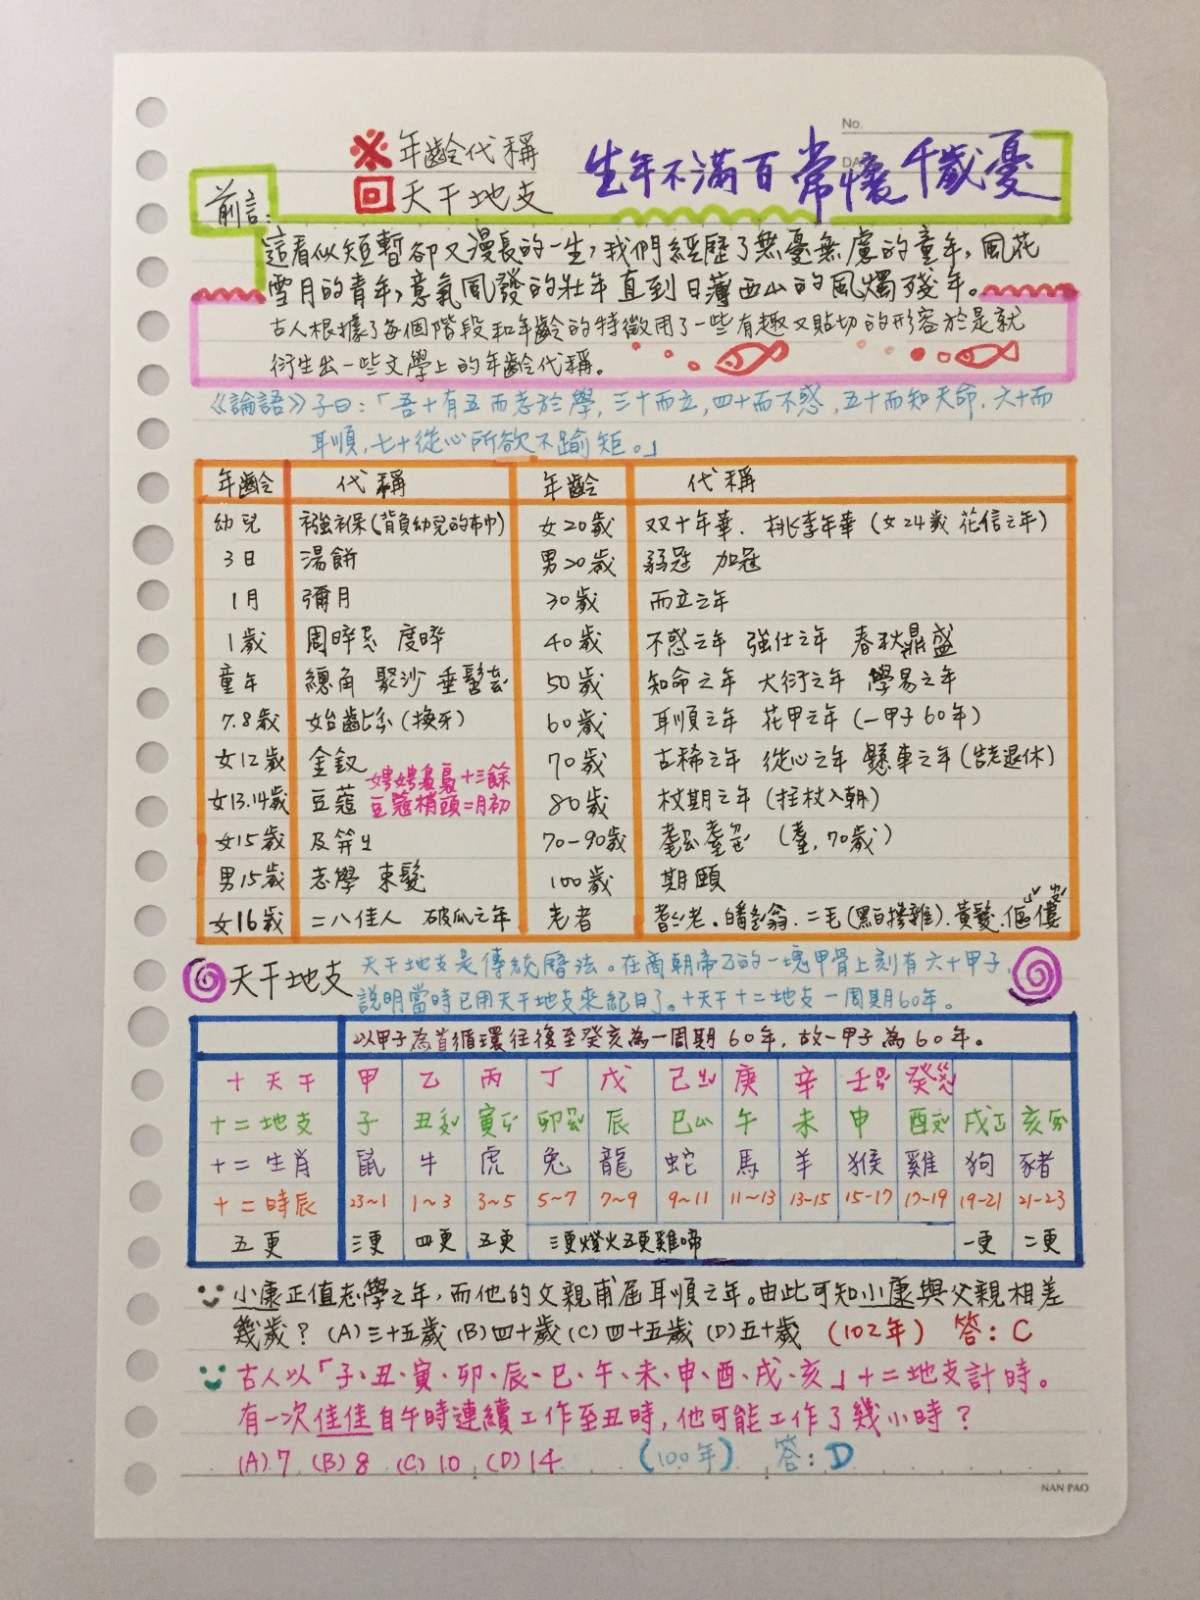 No.
※年齡代稱
生年不滿百 常懷千歲憂
回天干地支
前言:
這看似短暫卻又漫長的一生，我們經歷了無憂無慮的童年，風花
雪月的青年，意氣風發的壯年 直到日薄西山的風燭殘年。
古人根據了每個階段和年齡的特徵用了一些有趣又貼切的形容於是就
衍生出一些文學上的年齡代稱。
《論語》子曰：「吾十有五而志於學，三十而立，四十而不惑，五十而知天命，六十而
耳順，七十從心所欲不踰矩。」
年齡 代稱 年齡 代稱
幼兒 襁褓(背負幼兒的布巾) 女20歲 双十年華、桃李年華 (女24歲 花信之年)
3日 湯餅 男20歲 弱冠 加冠
1月 彌月 30歲 而立之年
1歲 周晬 度晬 40歲 不惑之年 強仕之年 春秋鼎盛
童年 總角 聚沙 垂髫 50歲 知命之年 大衍之年 學易之年
7.8歲 始齔 (換牙) 60歲 耳順之年 花甲之年 (一甲子60年)
女12歲 金釵 70歲 古稀之年 從心之年 懸車之年(告老退休)
娉娉裊裊十三餘
女13.14歲 豆蔻 豆蔻梢頭二月初 80歲 杖朝之年 (拄杖入朝)
女15歲 及笄 70-90歲 耄耋 (耋,70歲)
男15歲 志學 束髮 100歲 期頤
女16歲 二八佳人 破瓜之年 老者 耆老、皤翁、二毛(黑白摻雜)、黃髮、傴僂
天干地支 天干地支是傳統曆法。在商朝帝乙的一塊甲骨上刻有六十甲子，
說明當時已用天干地支來紀日了。十天干十二地支一周期60年。
以甲子為首循環往後至癸亥為一周期60年，故一甲子為60年。
十天干 甲 乙 丙 丁 戊 己ㄐㄧˇ 庚 辛 壬ㄖㄣˊ 癸ㄍㄨㄟˇ
十二地支 子 丑ㄔㄡˇ 寅ㄧㄣˊ 卯ㄇㄠˇ 辰 巳ㄙˋ 午 未 申 酉ㄧㄡˇ 戌 亥ㄏㄞˋ
十二生肖 鼠 牛 虎 兔 龍 蛇 馬 羊 猴 雞 狗 豬
十二時辰 23~1 1~3 3~5 5~7 7~9 9~11 11~13 13-15 15-17 17-19 19-21 21-23
五更 三更 四更 五更 三更燈火五更雞啼 一更 二更
小康正值志學之年，而他的父親甫屆耳順之年。由此可知小康與父親相差
幾歲？(A)三十五歲 (B)四十歲 (C)四十五歲 (D)五十歲 (102年) 答：C
古人以「子、丑、寅、卯、辰、巳、午、未、申、酉、戌、亥」十二地支計時。
有一次佳佳自午時連續工作至丑時，他可能工作了幾小時？
(A)7 (B)8 (C)10 (D)14 (100年) 答：D
NAN PAO